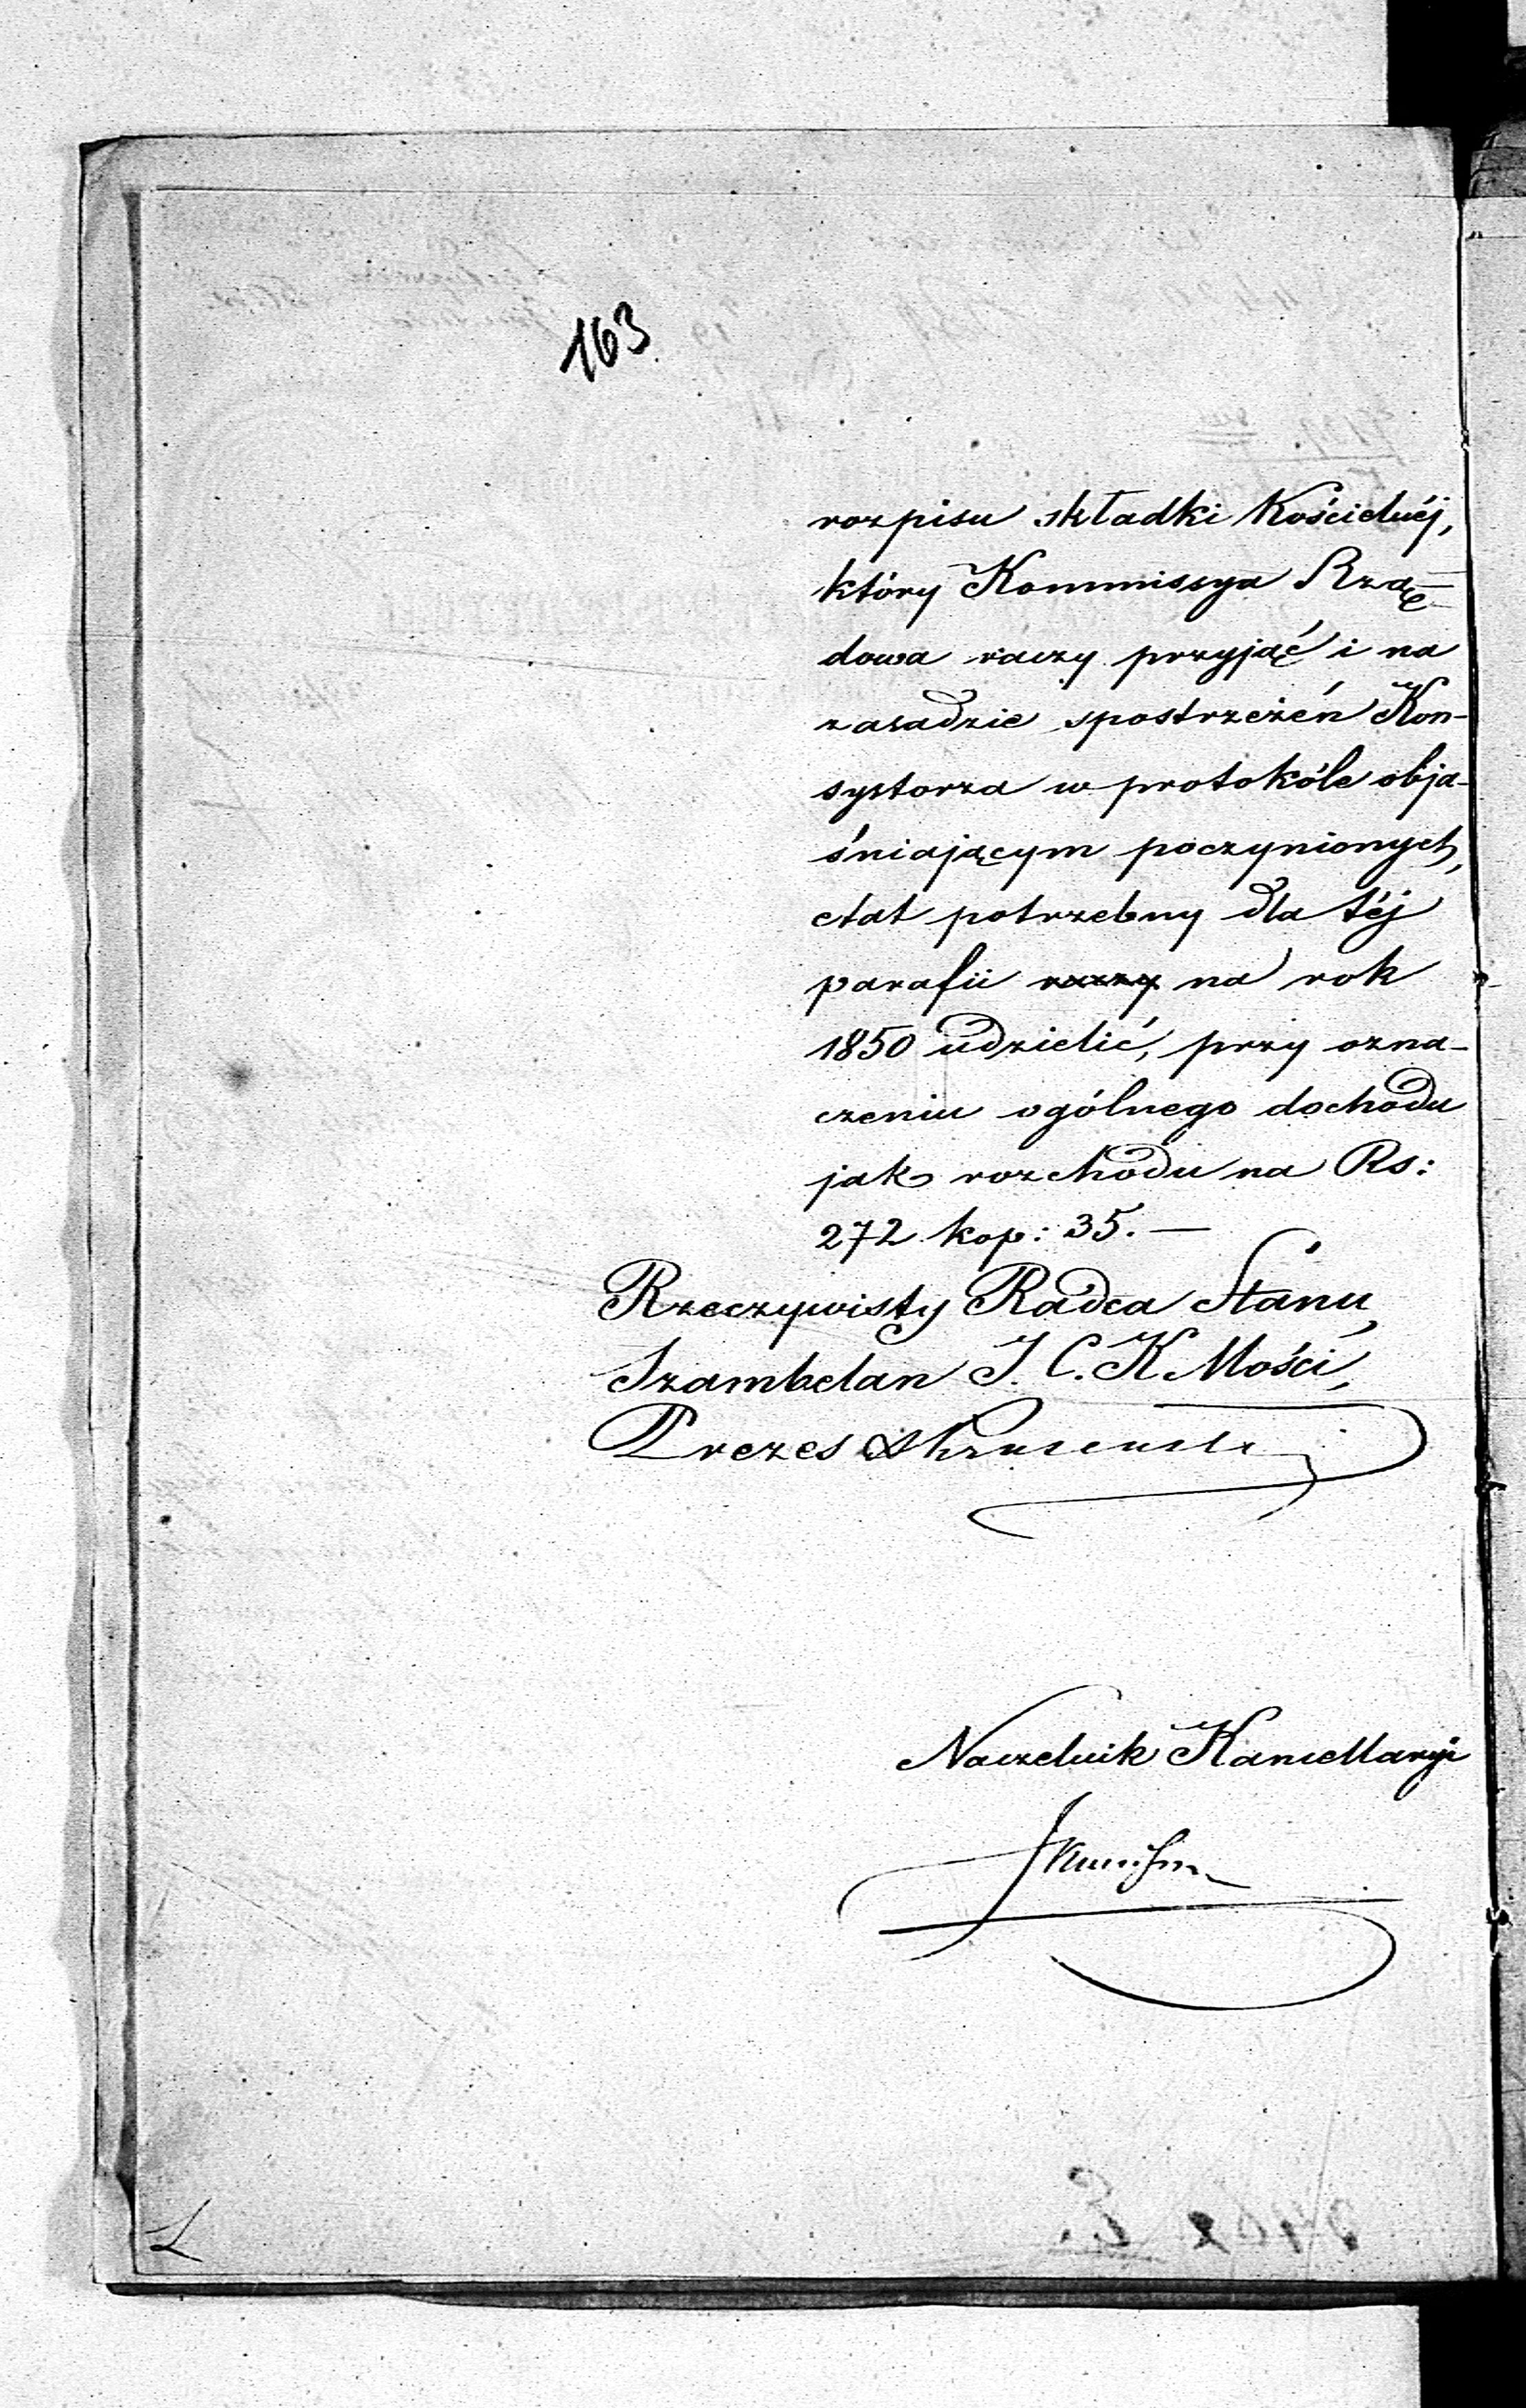 163
rozpisu składki Kościelnéj,
który Kommissya Rzą-
dowa raczy przyjąć i na
zasadzie spostrzeżeń Kon-
systorza w protokóle obja-
śniającym poczynionych,
etat potrzebny dla téj
parafii raczy na rok
1850 udzielić, przy ozna-
czeniu ogólnego dochodu
jak rozchodu na Rs:
272 kop: 35. —
Rzeczywisty Radca Stanu,
Szambelan J. C. K Mości,
Prezes
Naczelnik Kancellaryi